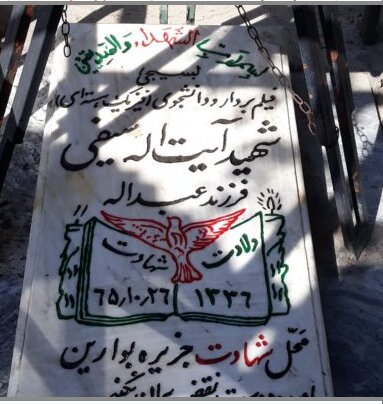 الشهداء والصدیقین
بسیجی
فیلمبردار و دانشجوی (فیزیک هسته‌ای)
شهید آیت اله سیفی
فرزند عبداله
ولادت شهادت
۱۳۳۶ ۶۵/۱۰/۲۶
محل شهادت جزیره بوارین